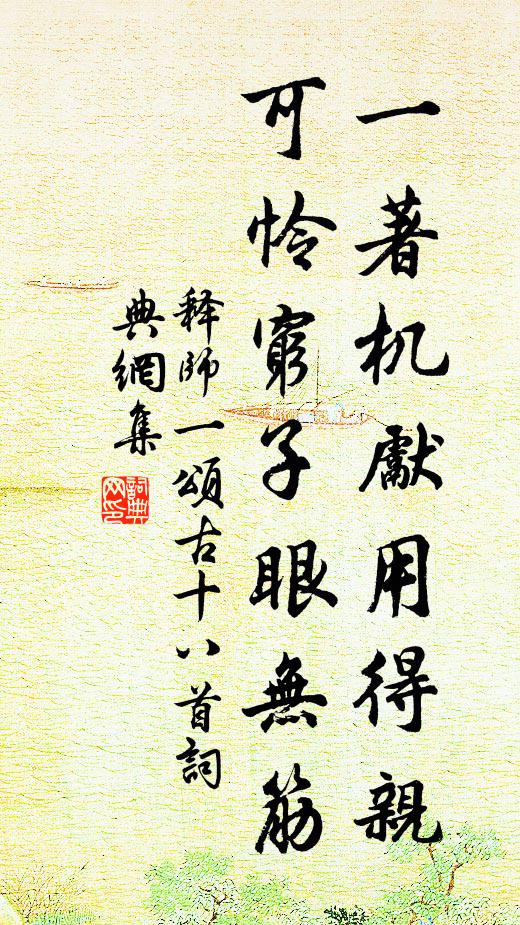 一著机獻用得親
可怜窮子眼無筋
释師一頌古十八首詞
典網集
詞典網印